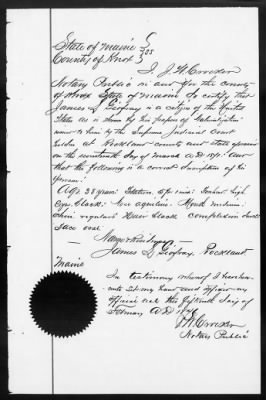 State of Maine } SS
County of Knox }
I, J. W. Crocker
Notary Public in and for the County
of Knox State of Maine do certify that
James S. is a citizen of the United
States as is shown by his papers of Naturalization
to him by the Supreme Judicial Court
holden at Rockland County and State aforesaid
on the day of March A.D. and
that the following is a correct description of his
person:
Age 38 years Stature 5 ft Forehead high
Eyes Black Nose aquiline Mouth medium
Chin regular Hair Black complexion dark
Face oval
James S. Rockland
Maine
In testimony whereof I have here
unto set my hand and affixed my
official seal this day of
A.D.
J. W. Crocker
Notary Public